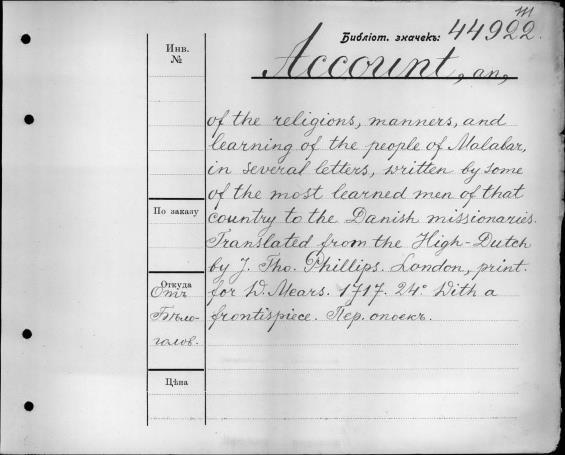 m
Библіот. значекъ: 44922.
Account, an,
Инв.
№
of the religions, manners, and
learning of the people of Malabar,
in several letters, written by some
of the most learned men of that
По заказу
country to the Danish missionaries.
Translated from the High-Dutch
by J. Tho. Phillips. London, print.
Откуда
Отъ
for W. Mears. 1717. 24° With a
Бѣло-
frontispiece. Пер. опоекъ.
голов.
Цѣна